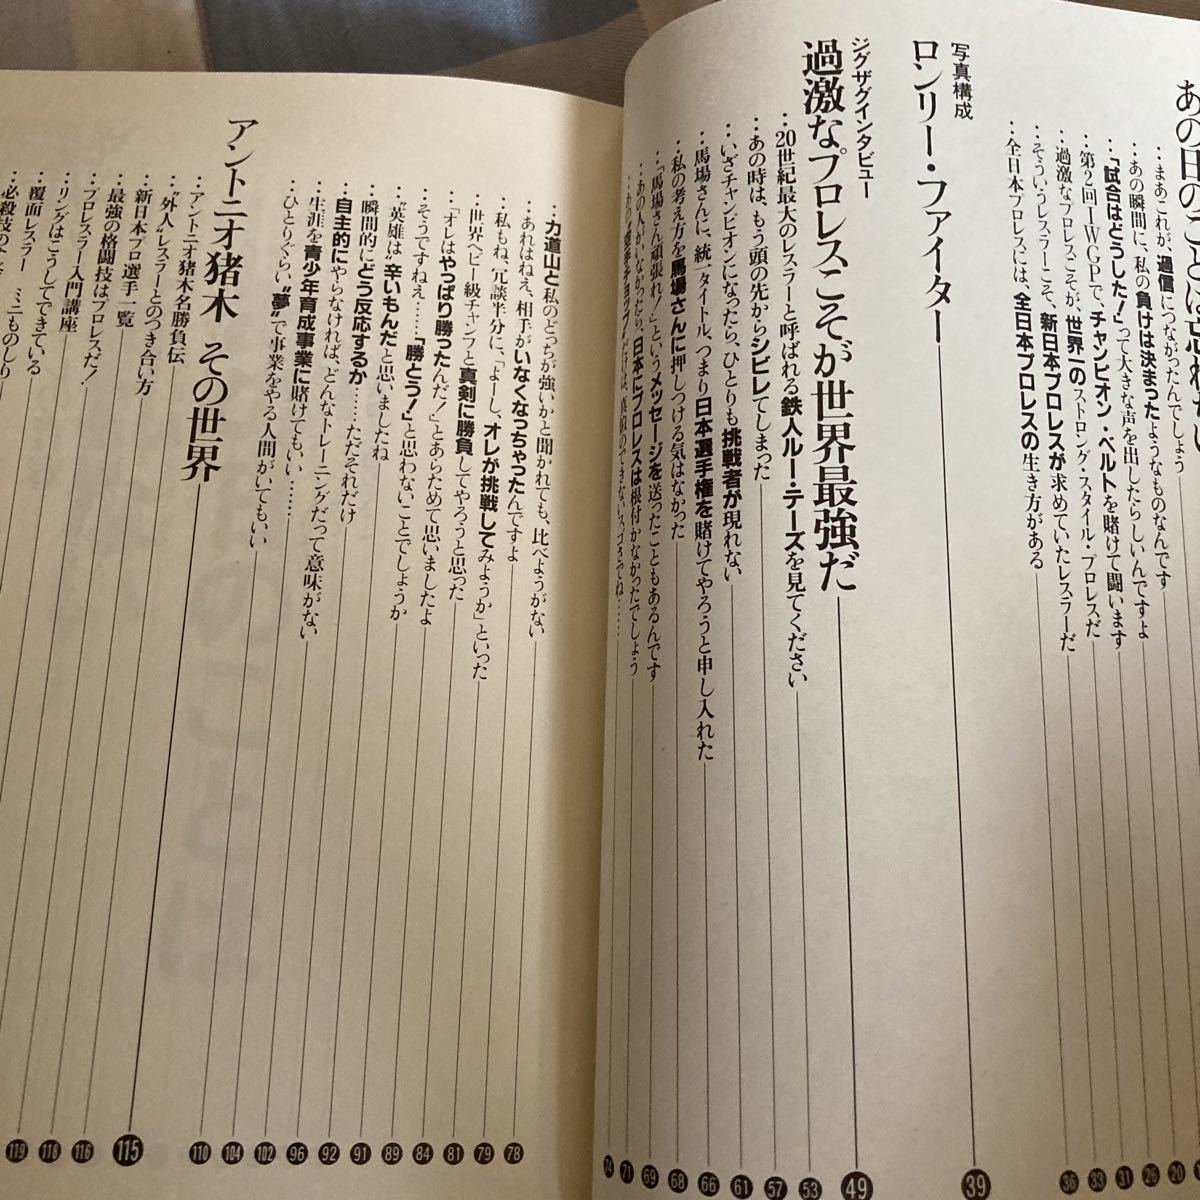 ‥まあこれが、過信につながったんでしょう
‥あの瞬間に、私の負けは決まったようなものなんです
‥「試合はどうした!」って大きな声を出したらしいんですよ
‥第2回IWGPで、チャンピオン・ベルトを賭けて闘います
‥過激なプロレスこそが、世界一のストロング・スタイル・プロレスだ
‥そういうレスラーこそ、新日本プロレスが求めていたレスラーだ
‥全日本プロレスには、全日本プロレスの生き方がある
20
26
28
31
33
36
写真構成
ロンリー・ファイター
39
ジグザグインタビュー
過激なプロレスこそが世界最強だ
49
‥20世紀最大のレスラーと呼ばれる鉄人ルー・テーズを見てください
53
‥あの時は、もう頭の先からシビレてしまった
57
‥いざチャンピオンになったら、ひとりも挑戦者が現れない
61
‥馬場さんに、統一タイトル、つまり日本選手権を賭けてやろうと申し入れた
66
‥私の考え方を馬場さんに押しつける気はなかった
68
‥「馬場さん頑張れ!」というメッセージを送ったこともあるんです
69
‥あの人がいなかったら、日本にプロレスは根付かなかったでしょう
71
74
‥力道山と私のどっちが強いかと聞かれても、比べようがない
78
‥あれはねえ、相手がいなくなっちゃったんですよ
79
‥私もね、冗談半分に、「よーし、オレが挑戦してみようか」といった
81
‥世界ヘビー級チャンプと真剣に勝負してやろうと思った
84
‥「オレはやっぱり勝ったんだ!」とあらためて思いましたよ
89
‥そうですねえ……「勝とう!」と思わないことでしょうか
91
‥“英雄は”辛いもんだと思いましたね
92
‥瞬間的にどう反応するか……ただそれだけ
96
‥自主的にやらなければ、どんなトレーニングだって意味がない
102
‥生涯を青少年育成事業に賭けてもいい……
104
‥ひとりぐらい“夢”で事業をやる人間がいてもいい
110
アントニオ猪木 その世界
115
‥アントニオ猪木名勝負伝
116
‥“外人”レスラーとのつき合い方
118
‥新日本プロ選手一覧
119
‥最強の格闘技はプロレスだ!
‥プロレスラー入門講座
‥リングはこうしてできている
‥覆面レスラー ミニものしり